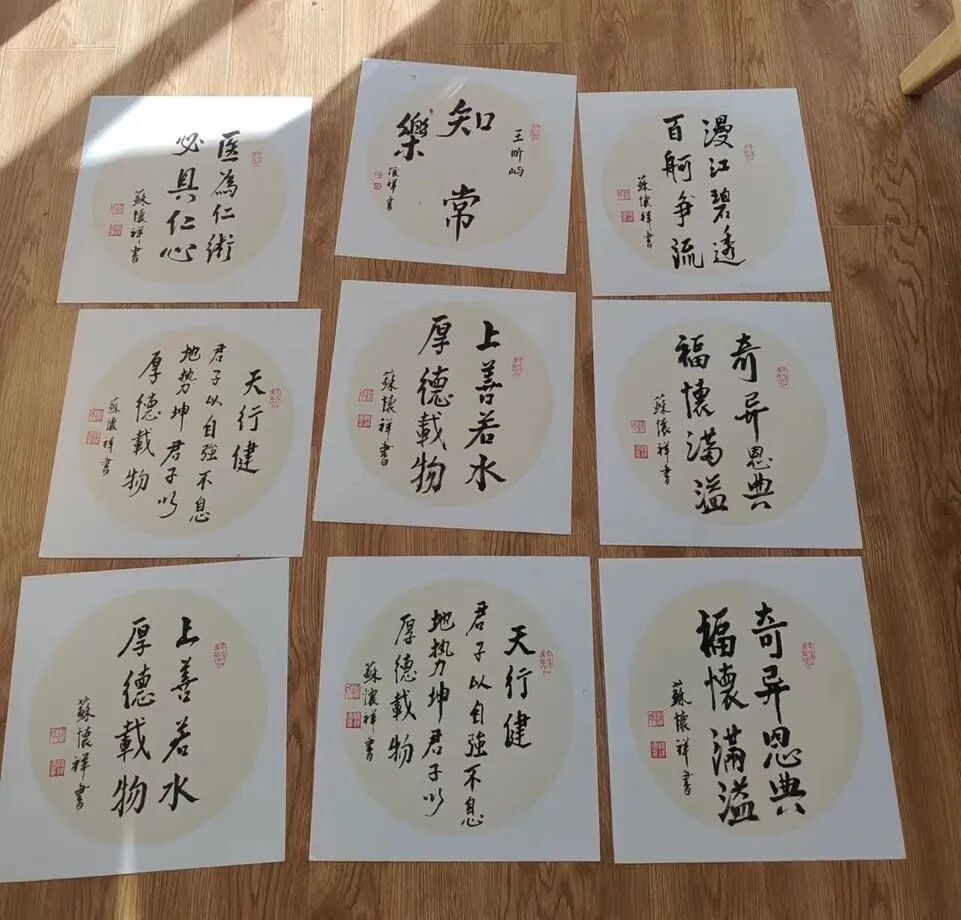 醫為仁術
必具仁心
蘇懷祥書
王昕屿
知常
樂
懷祥書
漫江碧透
百舸争流
蘇懷祥書
天行健
君子以自強不息
地势坤君子以
厚德載物
蘇懷祥書
上善若水
厚德載物
蘇懷祥書
奇异恩典
福懷滿溢
蘇懷祥書
上善若水
厚德載物
蘇懷祥書
天行健
君子以自強不息
地势坤君子以
厚德載物
蘇懷祥書
奇异恩典
福懷滿溢
蘇懷祥書